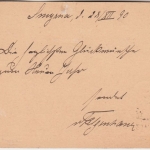 Smyrna d. 28/XII 90
Die herzlichsten Glückwünsche
zum Neuen Jahr
sendet